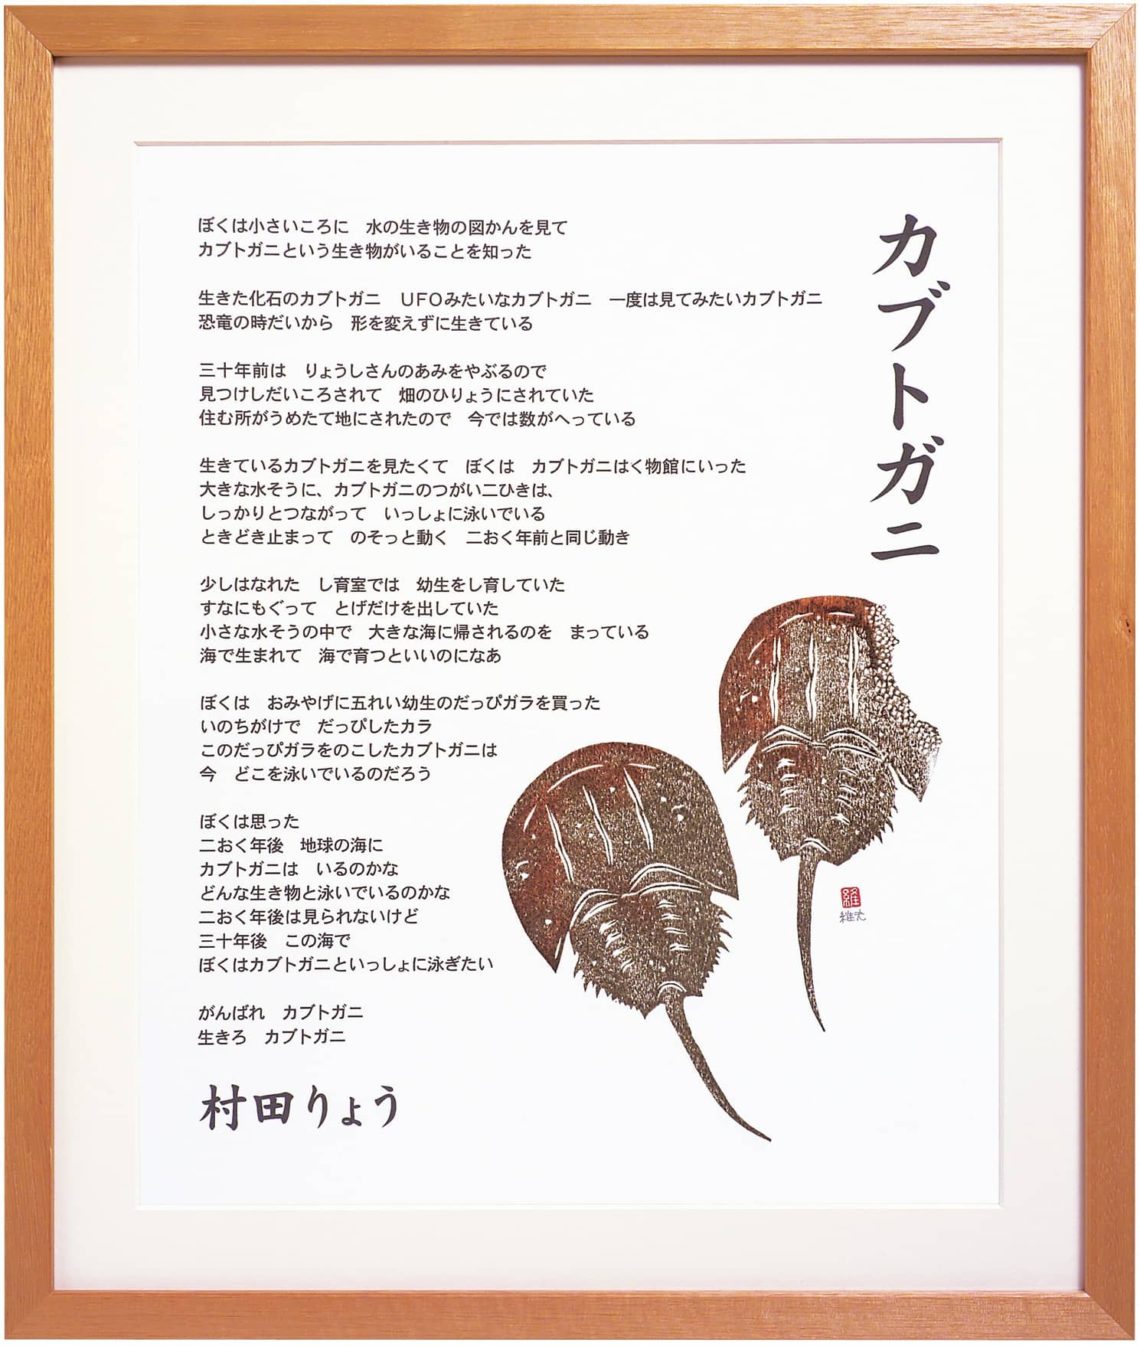 カブトガニ
ぼくは小さいころに　水の生き物の図かんを見て
カブトガニという生き物がいることを知った
生きた化石のカブトガニ　UFOみたいなカブトガニ　一度は見てみたいカブトガニ
恐竜の時だいから　形を変えずに生きている
三十年前は　りょうしさんのあみをやぶるので
見つけしだいころされて　畑のひりょうにされていた
住む所がうめたて地にされたので　今では数がへっている
生きているカブトガニを見たくて　ぼくは　カブトガニはく物館にいった
大きな水そうに、カブトガニのつがい二ひきは、
しっかりとつながって　いっしょに泳いでいる
ときどき止まって　のそっと動く　二おく年前と同じ動き
少しはなれた　し育室では　幼生をし育していた
すなにもぐって　とげだけを出していた
小さな水そうの中で　大きな海に帰されるのを　まっている
海で生まれて　海で育つといいのになあ
ぼくは　おみやげに五れい幼生のだっぴガラを買った
いのちがけで　だっぴしたカラ
このだっぴガラをのこしたカブトガニは
今　どこを泳いでいるのだろう
ぼくは思った
二おく年後　地球の海に
カブトガニは　いるのかな
どんな生き物と泳いでいるのかな
二おく年後は見られないけど
三十年後　この海で
ぼくはカブトガニといっしょに泳ぎたい
がんばれ　カブトガニ
生きろ　カブトガニ
村田りょう